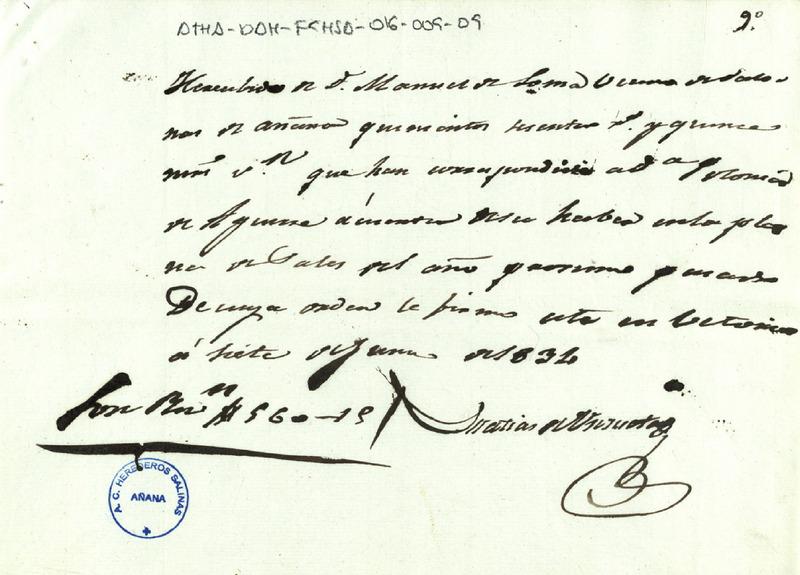 ATHA-DAH-FCHSA-016-009-09
9º
He recivido de Dn. Manuel de Loma Vecino de Sali-
nas de Añana quinientos sesenta rs. y quince
mrs vn. que han correspondido a Da Polonia
de Aguirre á cuenta de su haber en la ple
na de Sales del año proximo pasado
De cuya orden le firmo este en Vitoria
á siete de Junio de 1834
Son Rs vn # 560-15
Matias de
A. C. HEREDEROS SALINAS
AÑANA